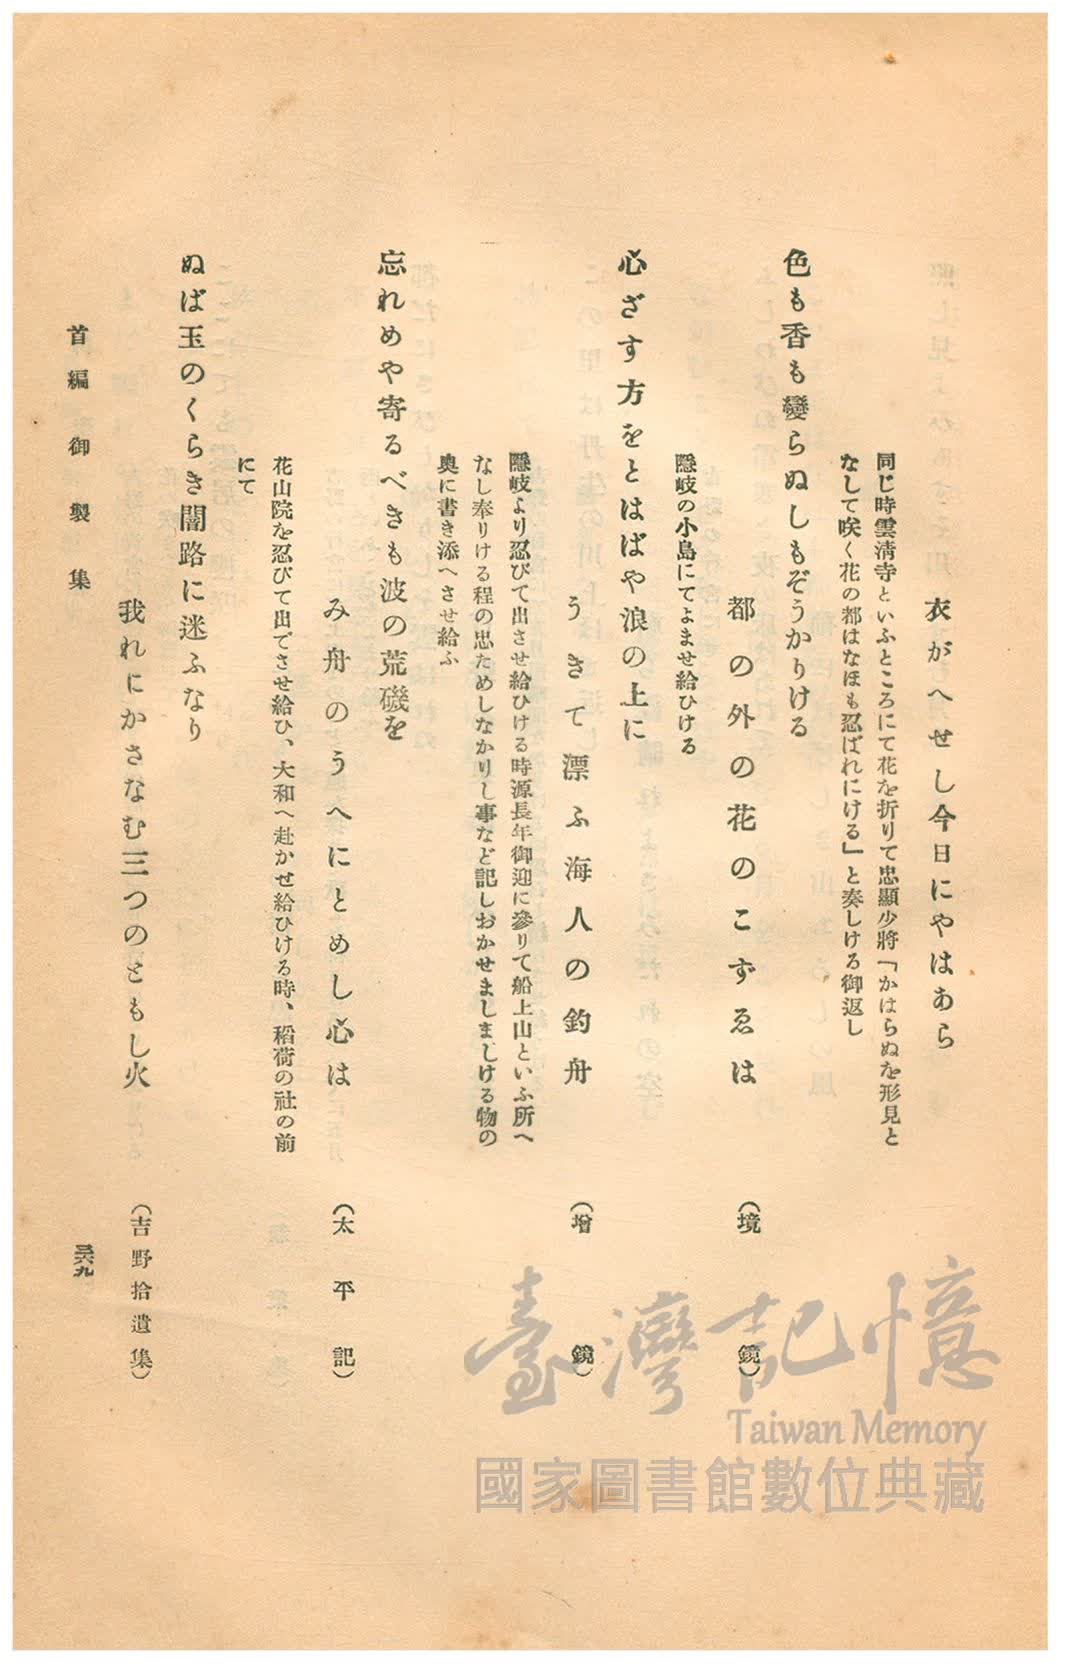 衣がへせし今日にやはあら
同じ時雲清寺といふところにて花を折りて忠顯少將「かはらぬを形見と
なして咲く花の都はなほも忍ばれにける」と奏しける御返し
色も香も變らぬしもぞうかりける
都の外の花のこずゑは
（境鏡）
隱岐の小島にてよませ給ひける
心ざす方をとはばや浪の上に
うきて漂ふ海人の釣舟
（增鏡）
隱岐より忍びて出させ給ひける時源長年御迎に參りて船上山といふ所へ
なし奉りける程の忠ためしなかりし事など記しおかせましましける物の
奥に書き添へさせ給ふ
忘れめや寄るべきも波の荒磯を
み舟のうへにとめし心は
（太平記）
花山院を忍びて出でさせ給ひ、大和へ赴かせ給ひける時、稻荷の社の前
にて
ぬば玉のくらき闇路に迷ふなり
我れにかさなむ三つのともし火
（吉野拾遺集）
首編御製集
三六九
臺灣記憶
Taiwan Memory
國家圖書館數位典藏